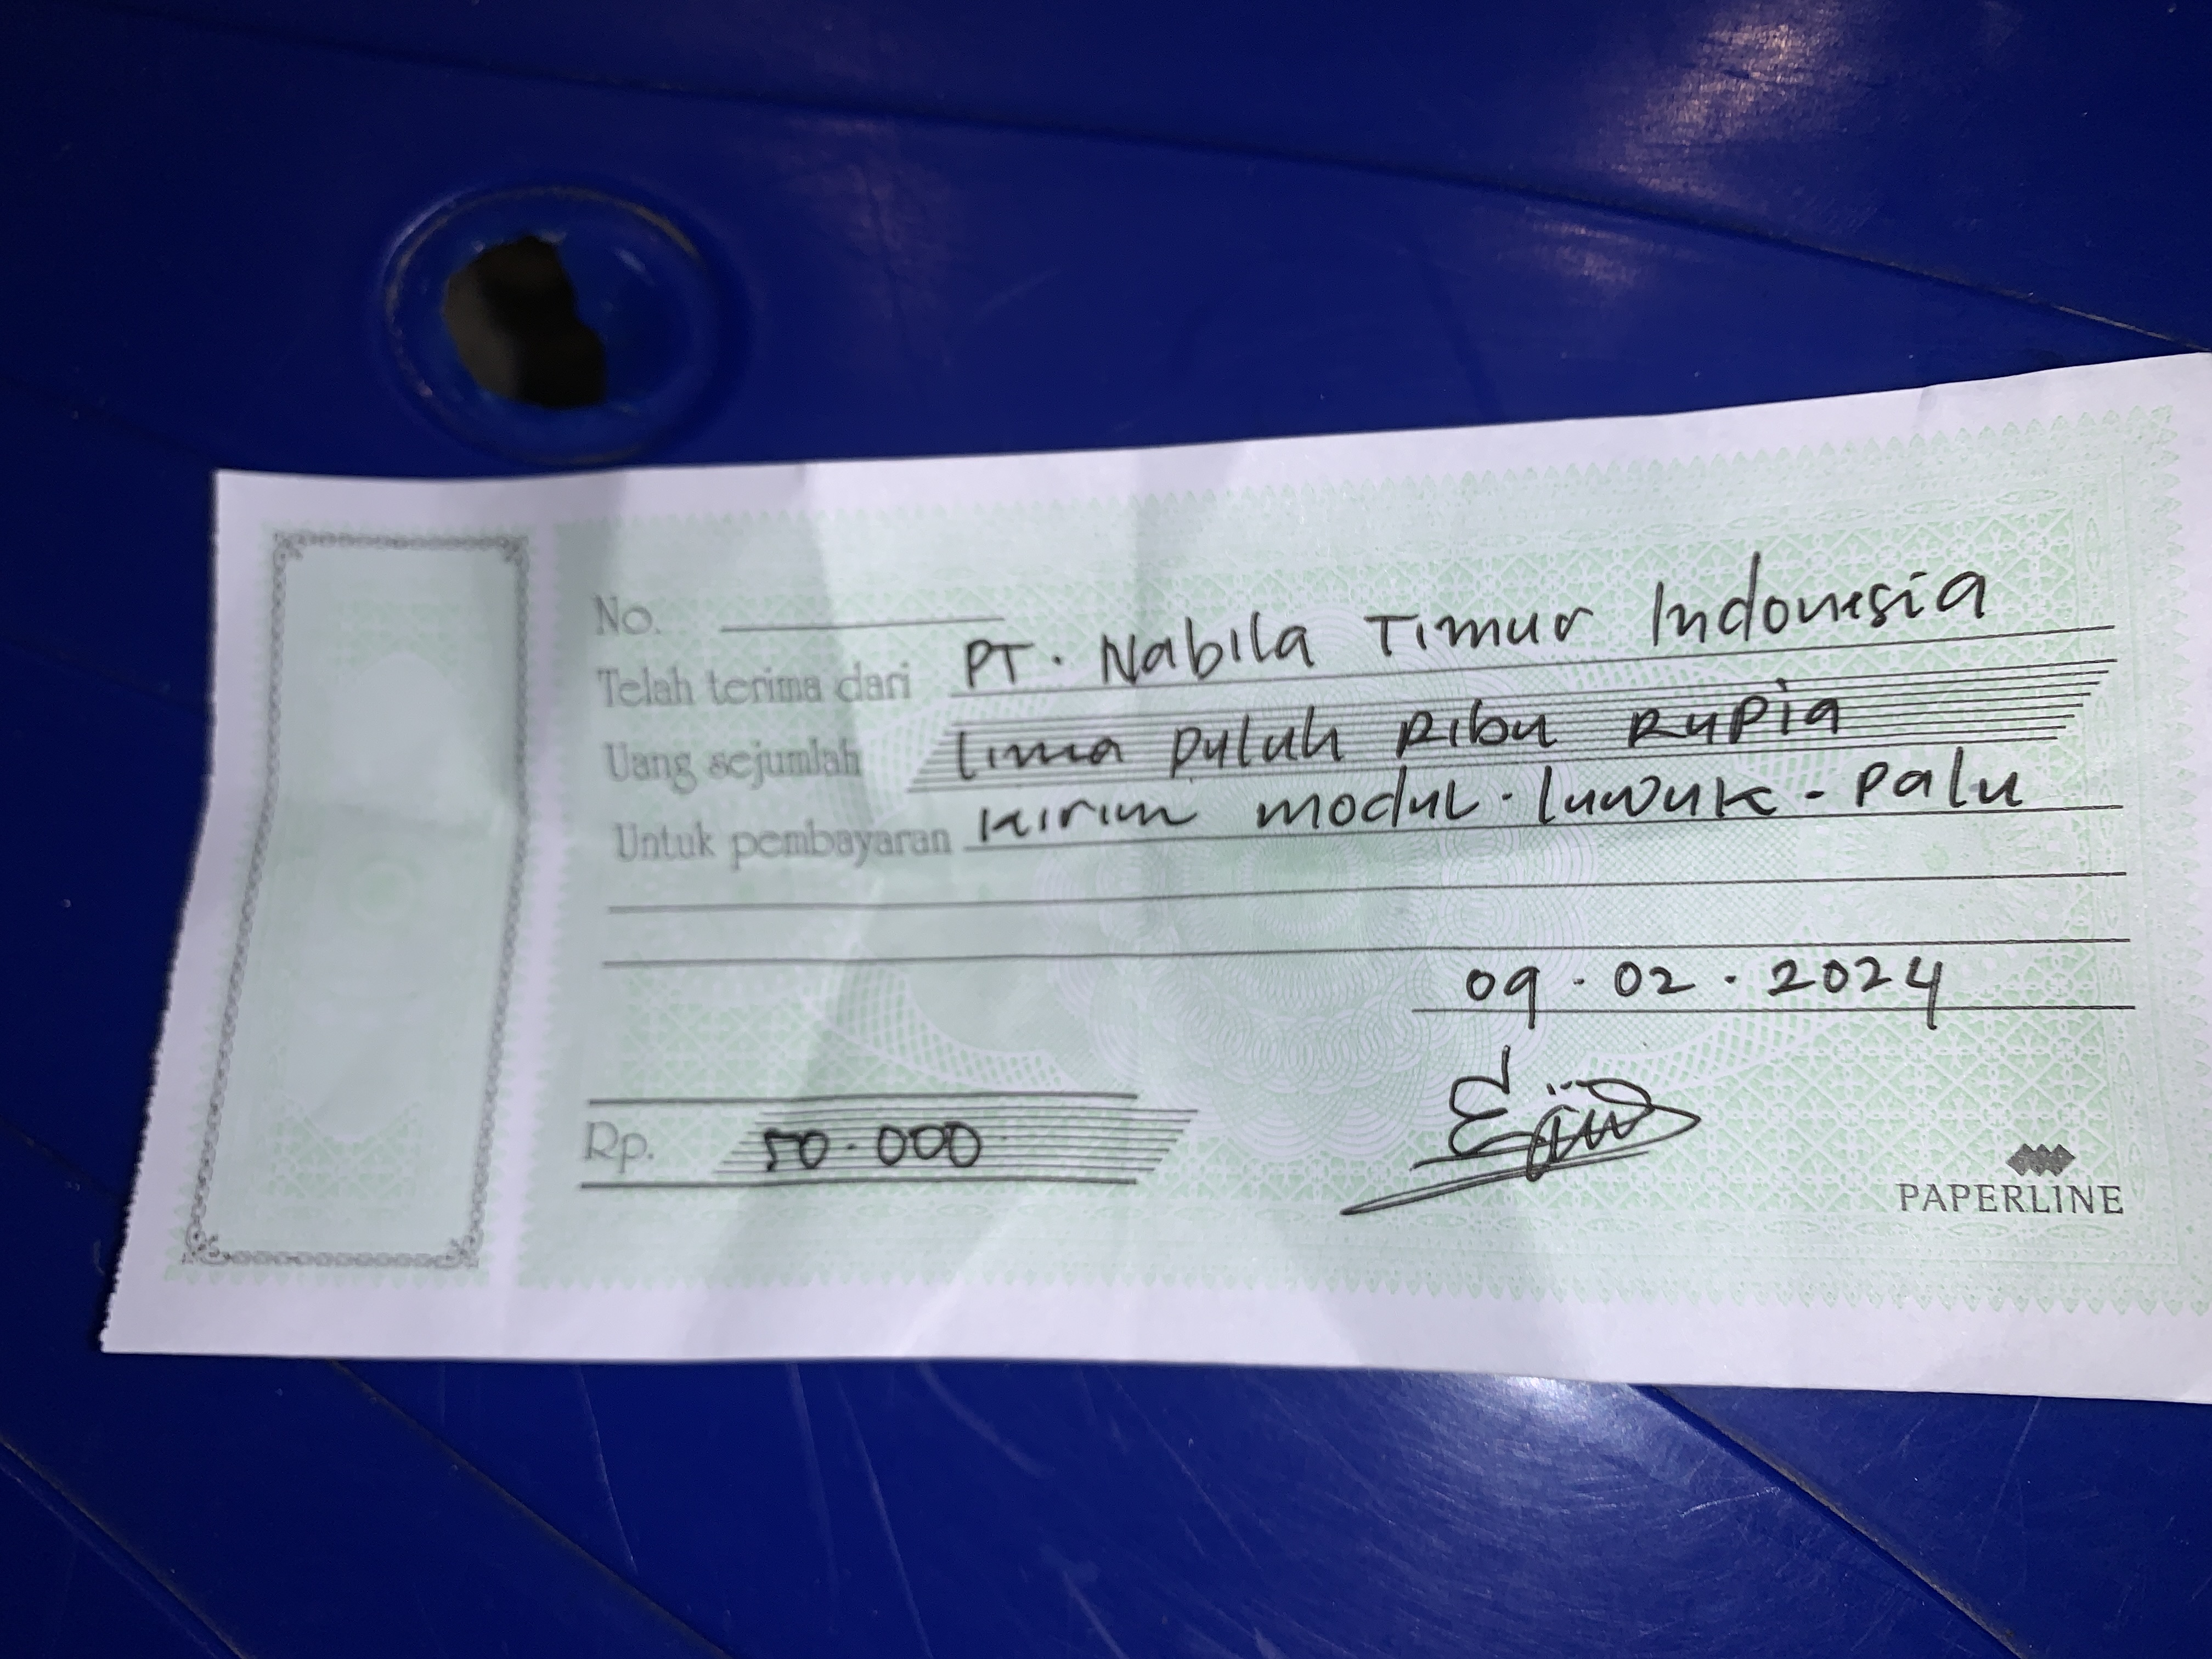 No.
Telah terima dari PT. Nabila Timur Indonesia
Uang sejumlah Lima puluh Ribu Rupia
Untuk pembayaran Kirim modul. Luwuk - Palu
09 - 02 - 2024
Rp. 50.000
PAPERLINE